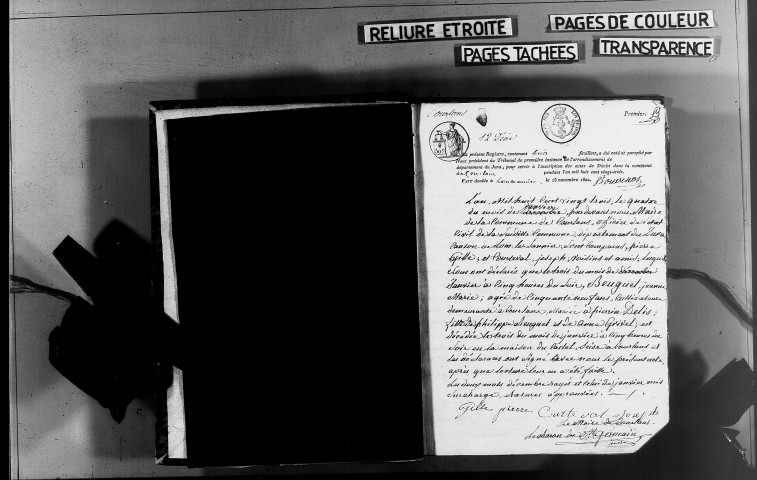 RELIURE ETROITE
PAGES DE COULEUR
PAGES TACHEES
TRANSPARENCE
Courlans
Premier
12 Feuil
Le présent Registre, contenant feuillets, a été coté et paraphé par
Nous président du Tribunal de première instance de l'arrondissement de
département du Jura, pour servir à l'inscription des actes de Décès dans la commune
de Courlans pendant l'an mil huit cent vingt-trois.
Fait double à Lons-le-saunier, le 15 novembre 1822.
L'an mil huit cent vingt trois, le quatre
du mois de janvier pardevant nous Maire
de la Commune de Courlans, officier de l'état
Civil de la susditte Commune, département du Jura
Canton de Lons-le-Saunier; Sont comparus, pierre
Gille, et Courteval, joseph, voisins et amis; lesquels
nous ont déclarés que le trois du mois de décembre
Janvier à Cinq heures du Soir, Bouguet, jeanne
Marie; agée de Cinquante neuf ans, Cultivateure
demeurante à Courlans, Mariée à pierre Letis;
fille de philippe Bouguet et de anne Grivel; est
décédée le trois du mois de janvier à Cinq heures du
Soir en la maison du Curtet, Sise à Courlans et
les déclarans ont signé avec nous le présent acte,
après que lecture leur en a été faitte.
Les deux mots décembre rayés et celui de janvier mis
Surcharge, ratures approuvées.
Gille pierre
Le Maire de Courlans.
Le Baron de St Germain